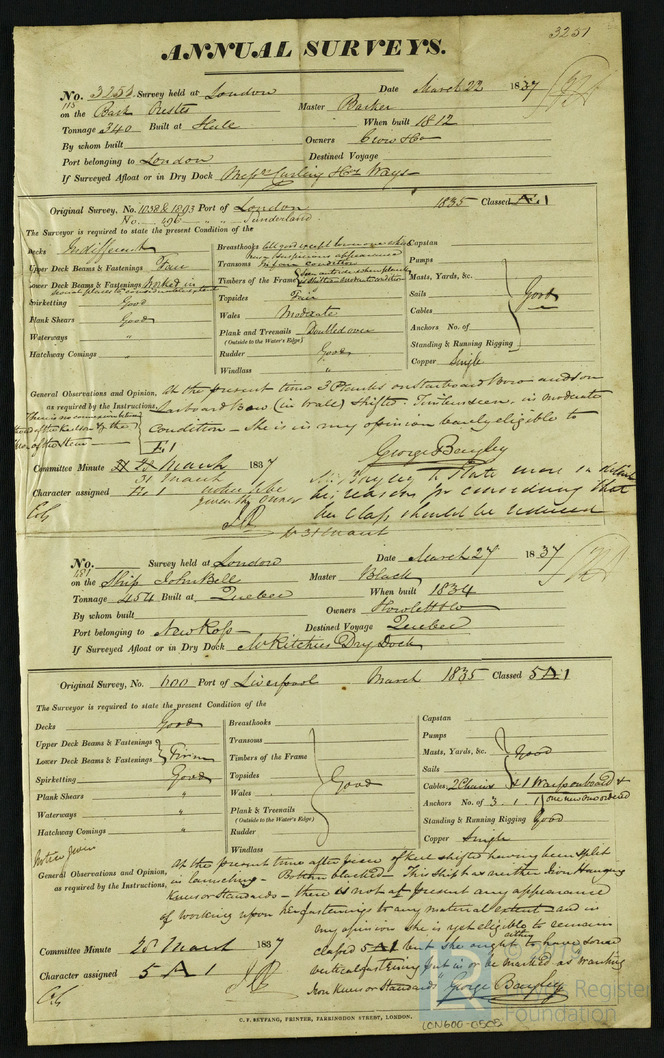 3251
ANNUAL SURVEYS.
No. 3252 Survey held at London Date March 22 1837
113
on the Bark Orestes Master Barker
Tonnage 340 Built at Hull When built 1812
By whom built Owners Crow & Co
Port belonging to London Destined Voyage
If Surveyed Afloat or in Dry Dock Messrs Curling & Co Ways
Original Survey, No. 1038 & 1893 Port of London 1835 Classed Æ 1
No. 496 " " Sunderland
The Surveyor is required to state the present Condition of the
Decks Indifferent
Upper Deck Beams & Fastenings Fair
Lower Deck Beams & Fastenings Worked in
several places to considerable extent
Spirketting Good
Plank Shears Good
Waterways "
Hatchway Comings "
Breasthooks All good except lower one which
has suspicious appearance
Transoms In fair condition
Timbers of the Frame
Topsides Fair
Wales Moderate
Plank and Treenails Doubled over
(Outside to the Water's Edge)
Rudder Good
Windlass "
Capstan
Pumps
Masts, Yards, &c.
Sails
Good
Cables
Anchors No. of
Standing & Running Rigging
Copper Single
General Observations and Opinion, At the present time 3 Planks on Starboard Bow and on
as required by the Instructions, Larboard Bow (in Wale) Shifted. Timbers seen, in moderate
Condition – She is in my opinion barely eligible to
Æ 1
George Bayley
Committee Minute 28 March 1837
31 March
Mr Bayley to State more in detail
Character assigned Æ 1
his reasons for considering that
her Class should be reduced
31 March
No. Survey held at London Date March 27 1837
181
on the Ship John Bell Master Black
Tonnage 454 Built at Quebec When built 1834
By whom built Owners Howlett & Co
Port belonging to New Ross Destined Voyage Quebec
If Surveyed Afloat or in Dry Dock McKitchies Dry Dock
Original Survey, No. 600 Port of Liverpool March 1835 Classed 5 A 1
The Surveyor is required to state the present Condition of the
Decks Good
Upper Deck Beams & Fastenings
Firm
Lower Deck Beams & Fastenings
Spirketting Good
Plank Shears "
Waterways "
Hatchway Comings "
Breasthooks
Transoms
Timbers of the Frame
Topsides
Good
Wales
Plank & Treenails
(Outside to the Water's Edge)
Rudder
Windlass
Capstan
Pumps
Masts, Yards, &c. Good
Sails
Cables 2 Chains & 1 Warp on board &
Anchors No. of 3 . 1 . 1 one new one ordered
Standing & Running Rigging Good
Copper Single
Notice given
General Observations and Opinion, At the present time after piece of keel shifted having been split
as required by the Instructions, in launching – Bottom blacked – This Ship has neither Iron Hanging
Knees or Standards – there is not at present any appearance
of working upon her fastenings to any material extent and in
my opinion She is yet eligible to remain
Committee Minute 28 March 1837
classed 5 A 1 but she ought either to have some
vertical fastening put in or be marked as "Wanting
Character assigned 5 A 1
Iron Knees or Standards" George Bayley
C. F. SEYFANG, PRINTER, FARRINGDON STREET, LONDON.
LON600-0502
Register
Foundation